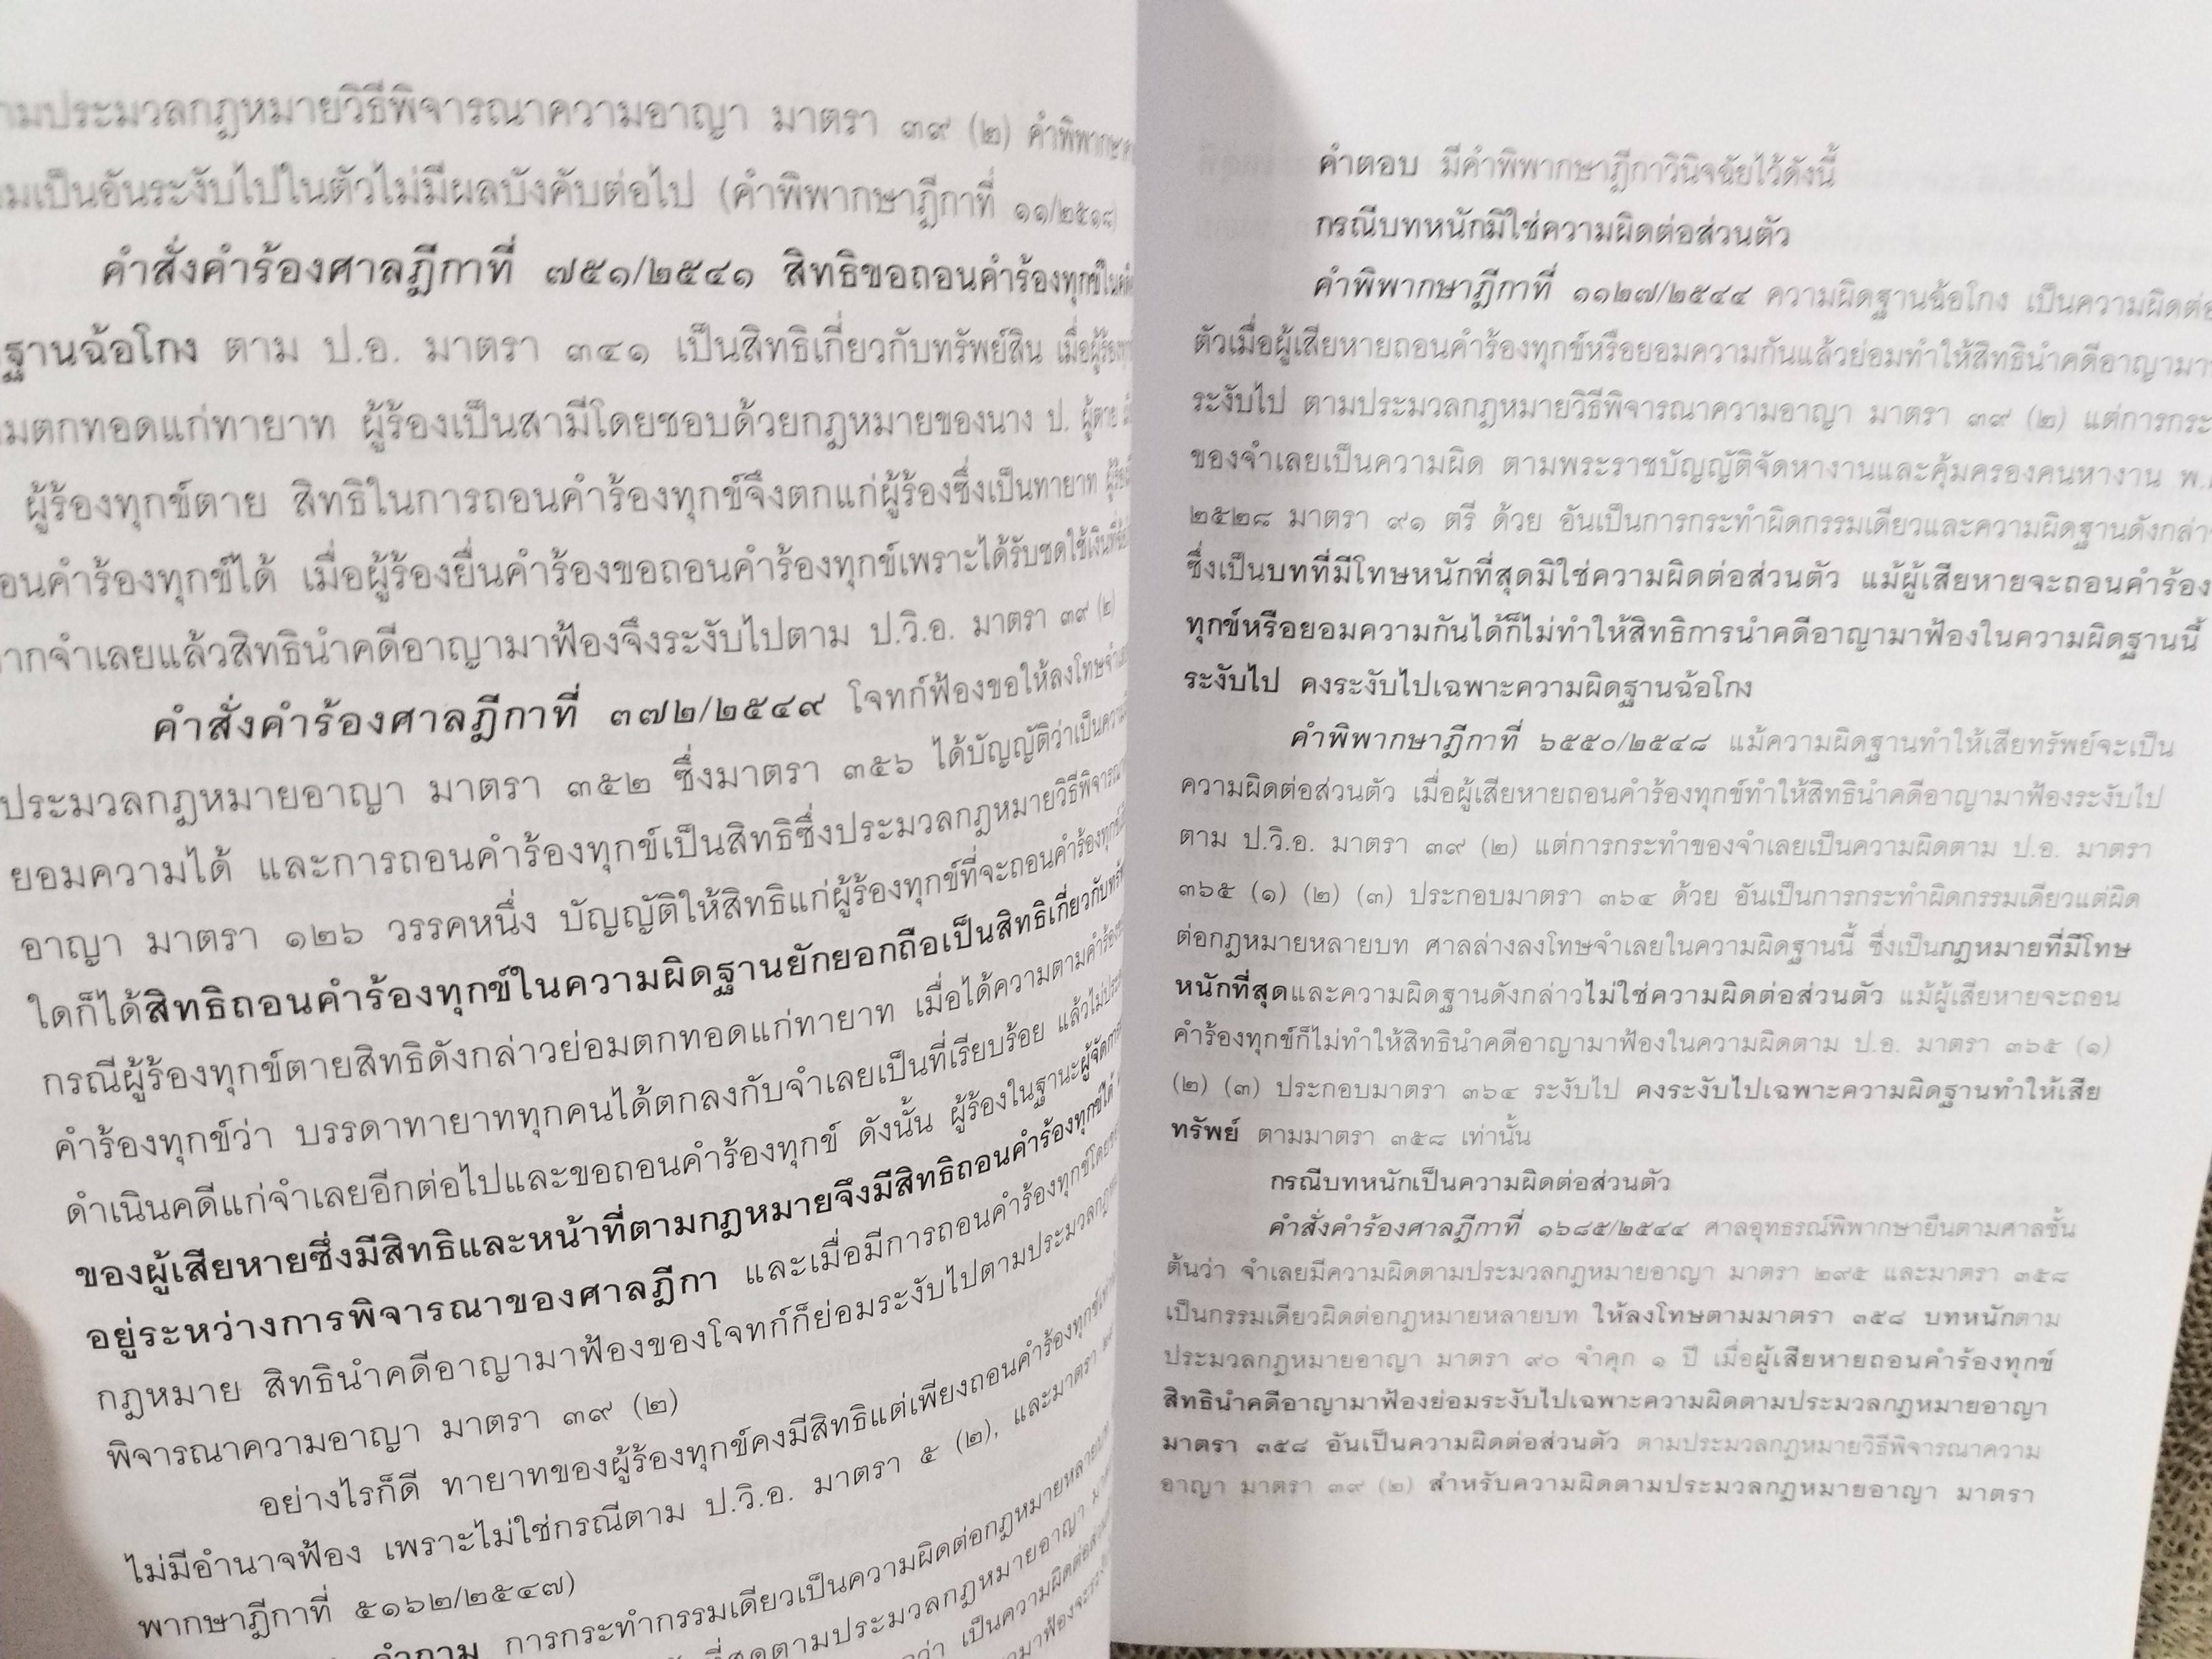 ามประมวลกฎหมายวิธีพิจารณาความอาญา มาตรา ๓๙ (๒) คำพิพากษา
มเป็นอันระงับไปในตัวไม่มีผลบังคับต่อไป (คำพิพากษาฎีกาที่ ๑๑/๒๕๑๘)
คำสั่งคำร้องศาลฎีกาที่ ๗๕๑/๒๕๔๑ สิทธิขอถอนคำร้องทุกข์ใน
ฐานฉ้อโกง ตาม ป.อ. มาตรา ๓๔๑ เป็นสิทธิเกี่ยวกับทรัพย์สิน เมื่อผู้ร้อง
มตกทอดแก่ทายาท ผู้ร้องเป็นสามีโดยชอบด้วยกฎหมายของนาง ป. ผู้ตาย
ผู้ร้องทุกข์ตาย สิทธิในการถอนคำร้องทุกข์จึงตกแก่ผู้ร้องซึ่งเป็นทายาท
อนคำร้องทุกข์ได้ เมื่อผู้ร้องยื่นคำร้องขอถอนคำร้องทุกข์เพราะได้รับชดใช้เงิน
ากจำเลยแล้วสิทธินำคดีอาญามาฟ้องจึงระงับไปตาม ป.วิ.อ. มาตรา ๓๙ (๒)
คำสั่งคำร้องศาลฎีกาที่ ๓๗๒/๒๕๔๙ โจทก์ฟ้องขอให้ลงโทษ
ประมวลกฎหมายอาญา มาตรา ๓๕๒ ซึ่งมาตรา ๓๕๖ ได้บัญญัติว่าเป็น
ยอมความได้ และการถอนคำร้องทุกข์เป็นสิทธิซึ่งประมวลกฎหมายวิธีพิจารณา
อาญา มาตรา ๑๒๖ วรรคหนึ่ง บัญญัติให้สิทธิแก่ผู้ร้องทุกข์ที่จะถอนคำร้องทุกข์
ใดก็ได้สิทธิถอนคำร้องทุกข์ในความผิดฐานยักยอกถือเป็นสิทธิเกี่ยวกับ
กรณีผู้ร้องทุกข์ตายสิทธิดังกล่าวย่อมตกทอดแก่ทายาท เมื่อได้ความตามคำร้อง
คำร้องทุกข์ว่า บรรดาทายาททุกคนได้ตกลงกับจำเลยเป็นที่เรียบร้อย แล้ว
ดำเนินคดีแก่จำเลยอีกต่อไปและขอถอนคำร้องทุกข์ ดังนั้น ผู้ร้องในฐานะผู้จัดการ
ของผู้เสียหายซึ่งมีสิทธิและหน้าที่ตามกฎหมายจึงมีสิทธิถอนคำร้องทุกข์ได้
อยู่ระหว่างการพิจารณาของศาลฎีกา และเมื่อมีการถอนคำร้องทุกข์โดย
กฎหมาย สิทธินำคดีอาญามาฟ้องของโจทก์ก็ย่อมระงับไปตามประมวล
พิจารณาความอาญา มาตรา ๓๙ (๒)
อย่างไรก็ดี ทายาทของผู้ร้องทุกข์คงมีสิทธิแต่เพียงถอนคำร้องทุกข์
ไม่มีอำนาจฟ้อง เพราะไม่ใช่กรณีตาม ป.วิ.อ. มาตรา ๕ (๒), และมาตรา
พากษาฎีกาที่ ๕๑๖๒/๒๕๔๗)
คำถาม การกระทำกรรมเดียวเป็นความผิดต่อกฎหมายหลาย
ที่สุดตามประมวลกฎหมายอาญา
ว่า เป็นความผิดต่อ
คำตอบ มีคำพิพากษาฎีกาวินิจฉัยไว้ดังนี้
กรณีบทหนักมิใช่ความผิดต่อส่วนตัว
คำพิพากษาฎีกาที่ ๑๑๒๗/๒๕๔๔ ความผิดฐานฉ้อโกง เป็นความผิดต่อ
ตัวเมื่อผู้เสียหายถอนคำร้องทุกข์หรือยอมความกันแล้วย่อมทำให้สิทธินำคดีอาญามา
ระงับไป ตามประมวลกฎหมายวิธีพิจารณาความอาญา มาตรา ๓๙ (๒) แต่การกระ
ของจำเลยเป็นความผิด ตามพระราชบัญญัติจัดหางานและคุ้มครองคนหางาน พ.
๒๕๒๘ มาตรา ๙๑ ตรี ด้วย อันเป็นการกระทำผิดกรรมเดียวและความผิดฐานดังกล่าว
ซึ่งเป็นบทที่มีโทษหนักที่สุดมิใช่ความผิดต่อส่วนตัว แม้ผู้เสียหายจะถอนคำร้อง
ทุกข์หรือยอมความกันได้ก็ไม่ทำให้สิทธิการนำคดีอาญามาฟ้องในความผิดฐานนี้
ระงับไป คงระงับไปเฉพาะความผิดฐานฉ้อโกง
คำพิพากษาฎีกาที่ ๖๕๕๐/๒๕๔๘ แม้ความผิดฐานทำให้เสียทรัพย์จะเป็น
ความผิดต่อส่วนตัว เมื่อผู้เสียหายถอนคำร้องทุกข์ทำให้สิทธินำคดีอาญามาฟ้องระงับไป
ตาม ป.วิ.อ. มาตรา ๓๙ (๒) แต่การกระทำของจำเลยเป็นความผิดตาม ป.อ. มาตรา
๓๖๕ (๑) (๒) (๓) ประกอบมาตรา ๓๖๔ ด้วย อันเป็นการกระทำผิดกรรมเดียวแต่ผิด
ต่อกฎหมายหลายบท ศาลล่างลงโทษจำเลยในความผิดฐานนี้ ซึ่งเป็นกฎหมายที่มีโทษ
หนักที่สุดและความผิดฐานดังกล่าวไม่ใช่ความผิดต่อส่วนตัว แม้ผู้เสียหายจะถอน
คำร้องทุกข์ก็ไม่ทำให้สิทธินำคดีอาญามาฟ้องในความผิดตาม ป.อ. มาตรา ๓๖๕ (๑)
(๒) (๓) ประกอบมาตรา ๓๖๔ ระงับไป คงระงับไปเฉพาะความผิดฐานทำให้เสีย
ทรัพย์ ตามมาตรา ๓๕๘ เท่านั้น
กรณีบทหนักเป็นความผิดต่อส่วนตัว
คำสั่งคำร้องศาลฎีกาที่ ๑๖๘๕/๒๕๔๔ ศาลอุทธรณ์พิพากษายืนตามศาลชั้น
ต้นว่า จำเลยมีความผิดตามประมวลกฎหมายอาญา มาตรา ๒๙๕ และมาตรา ๓๕๘
เป็นกรรมเดียวผิดต่อกฎหมายหลายบท ให้ลงโทษตามมาตรา ๓๕๘ บทหนักตาม
ประมวลกฎหมายอาญา มาตรา ๙๐ จำคุก ๑ ปี เมื่อผู้เสียหายถอนคำร้องทุกข์
สิทธินำคดีอาญามาฟ้องย่อมระงับไปเฉพาะความผิดตามประมวลกฎหมายอาญา
มาตรา ๓๕๘ อันเป็นความผิดต่อส่วนตัว ตามประมวลกฎหมายวิธีพิจารณาความ
อาญา มาตรา ๓๙ (๒) สำหรับความผิดตามประมวลกฎหมายอาญา มาตรา